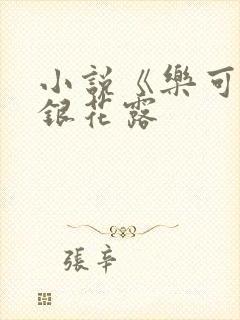 小説《樂可
銀花露
張辛